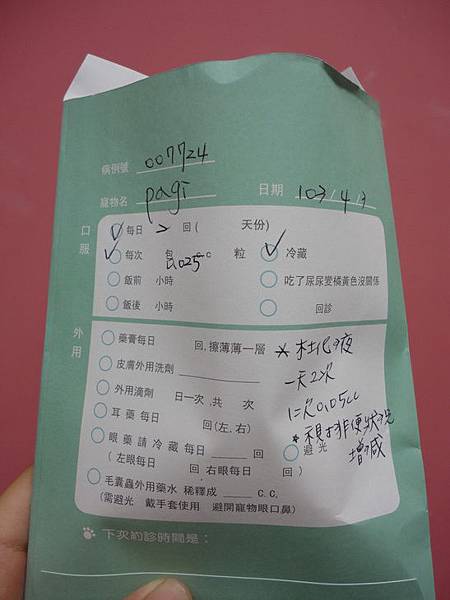 病例號 007724
寵物名 pagi 日期 103/4/3
口服
每日 2 回( 天份)
每次 包 0.025 c.c 粒 冷藏
飯前 小時 吃了尿尿變橘黃色沒關係
飯後 小時 回診
外用
藥膏每日 回,擦薄薄一層
皮膚外用洗劑
外用滴劑 日一次,共 次
耳藥 每日 回(左,右)
眼藥請冷藏 每日 回 避光
(左眼每日 回 右眼每日 回)
毛囊蟲外用藥水 稀釋成 C.C.
(需避光 戴手套使用 避開寵物眼口鼻)
* 杜化液
一天2次
1次0.05cc
* 視排便狀況
增減
下次約診時間是: